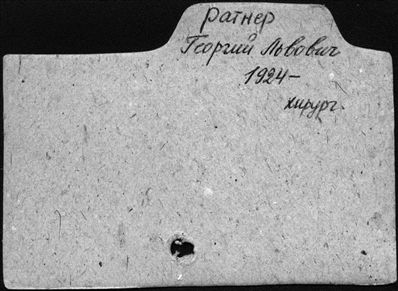 Ратнер
Георгий Львович
1924-
хирург.